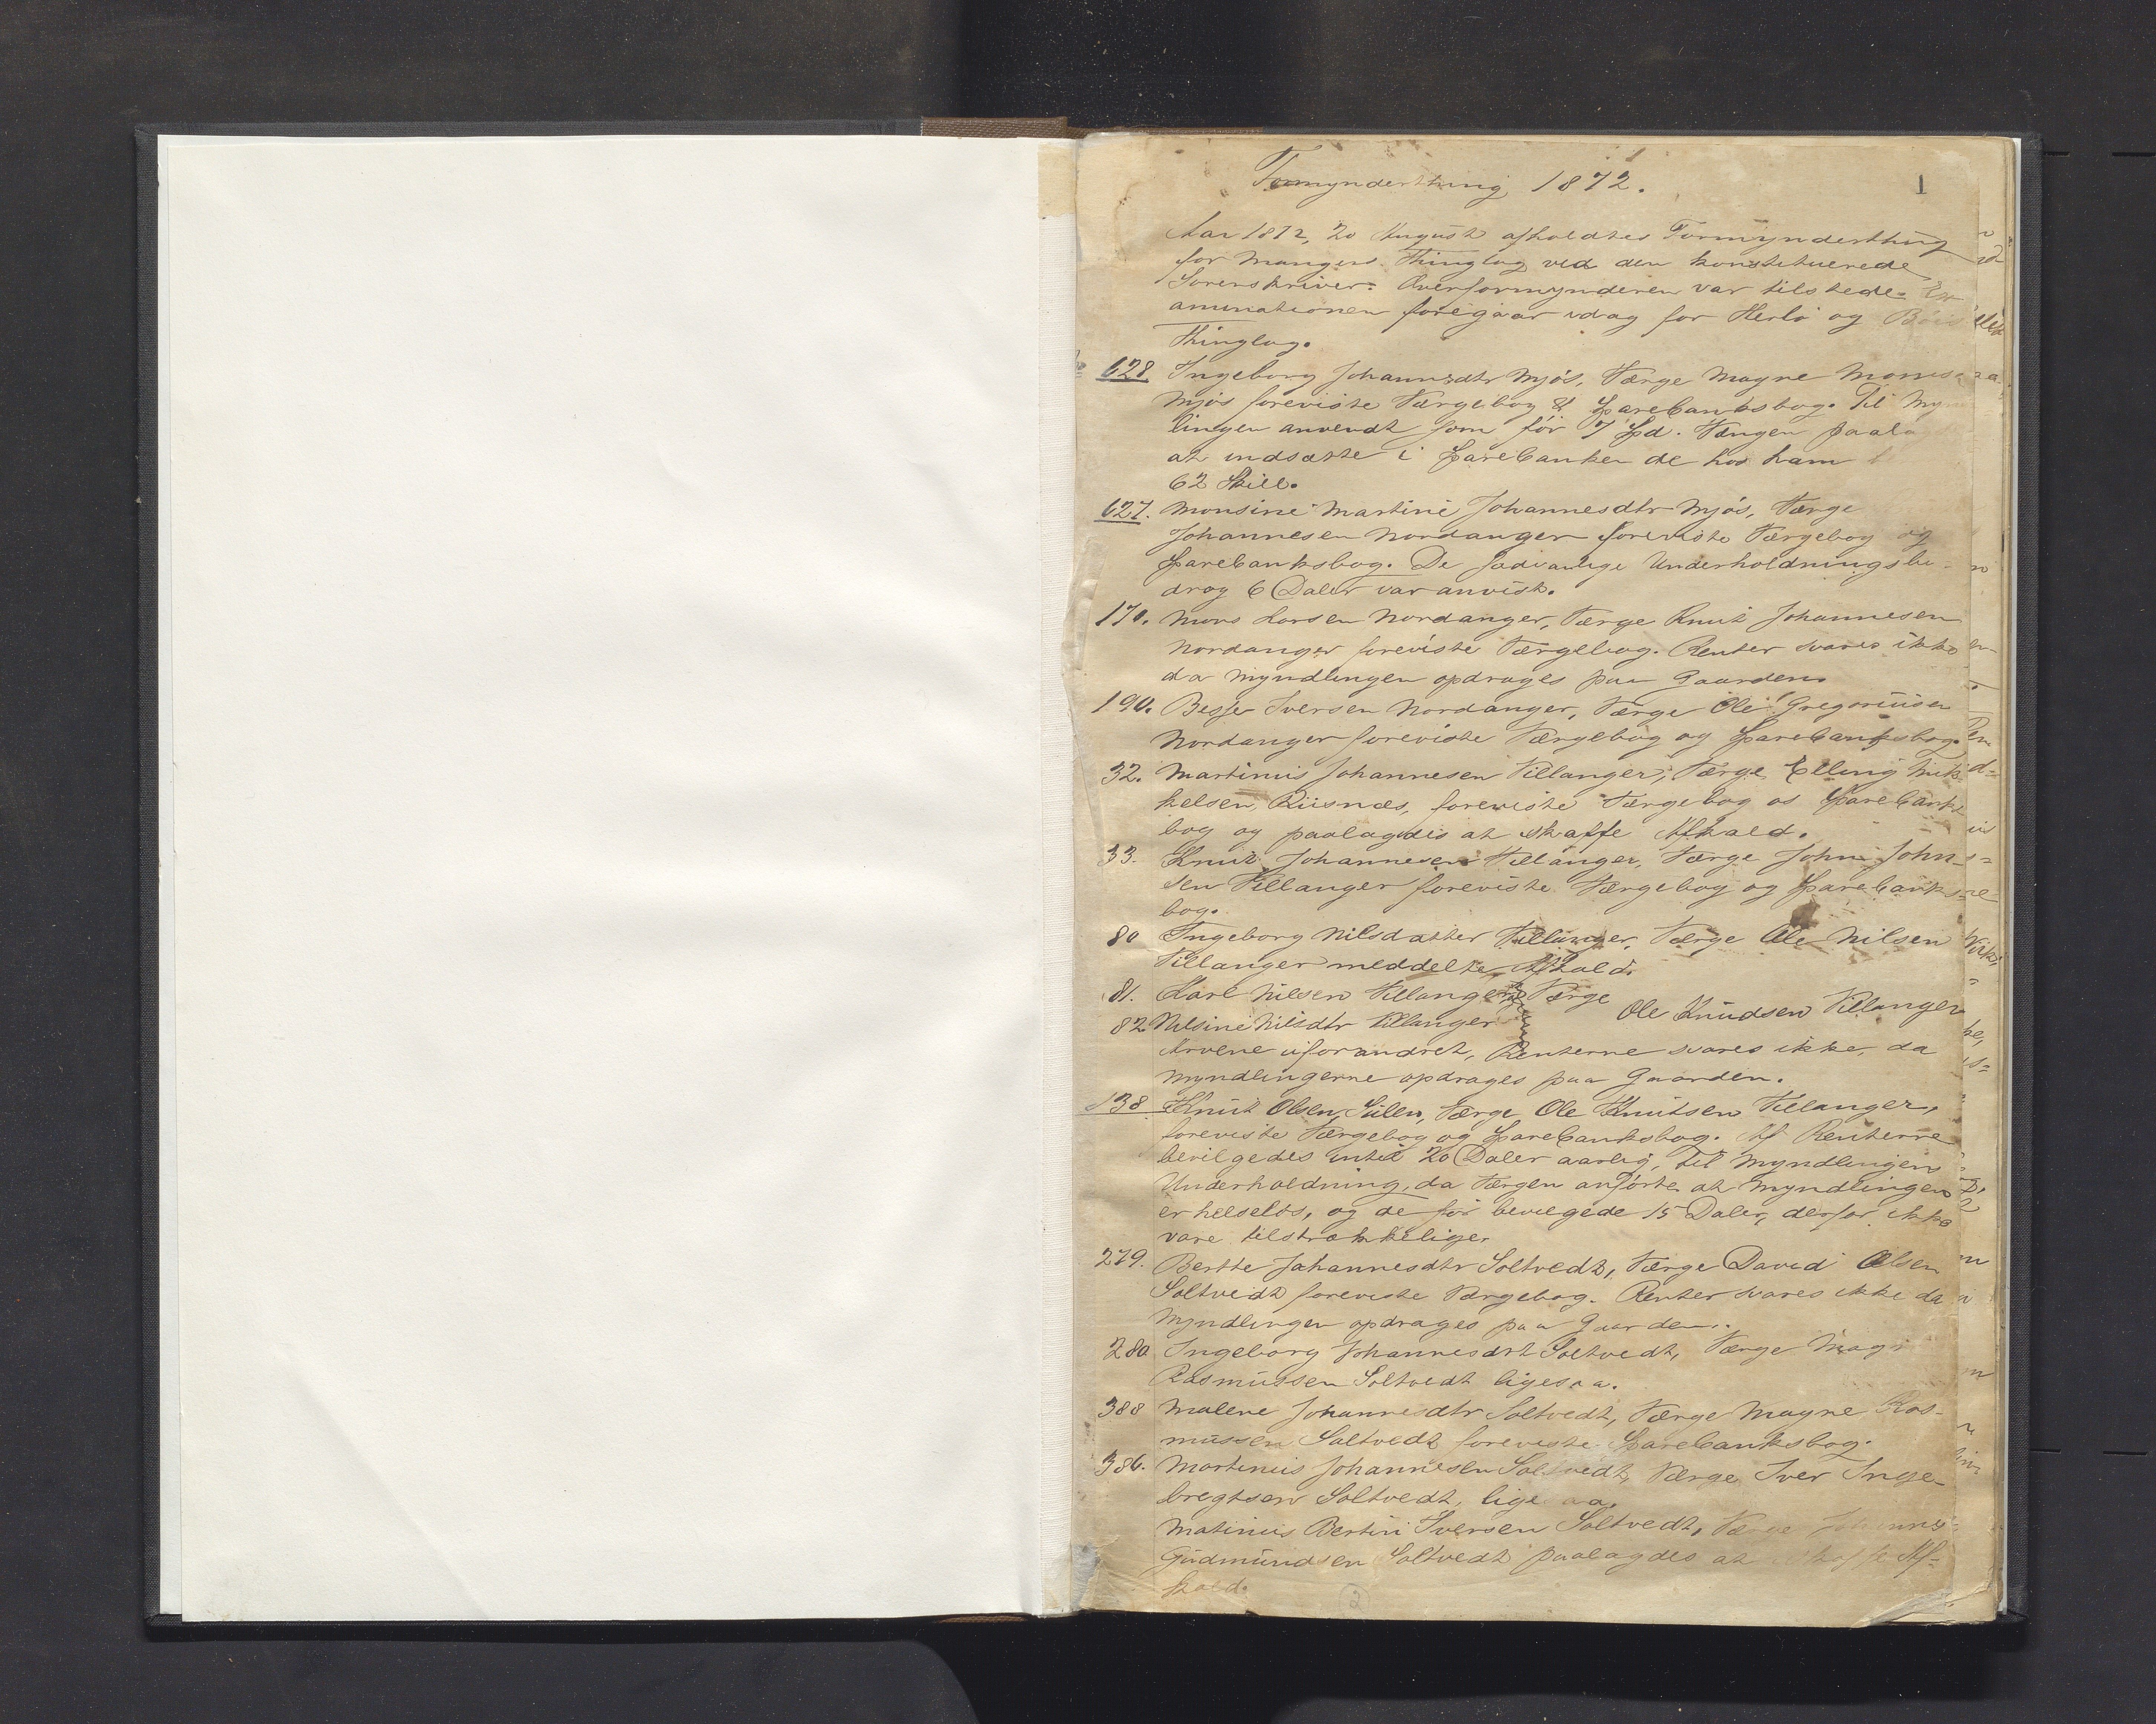 Formynderthing 1872.
1
Aar 1872, 20 August afholdtes Formynderthing
for Mangers Thinglag ved den konstituerede
Sorenskriver. Overformynderen var tilstede. Ex
aminationen foregaar idag for Herlø og
Thinglag.
628 Ingeborg Johannsdtr Mjøs, Værge Magne Monsen
Mjøs foreviste Værgebog & Sparebanksbog. Til Myn
lingen anvendt som før 7 Spd. Værgen paala
at indsætte i Sparebanken de hos ham
62 Skill.
627. Monsine Martine Johannesdtr Mjøs, Værge
Johannesen Nordanger foreviste Værgebog og
Sparebanksbog. De sædvanlige Underholdningsbi-
drag 6 Daler var anvist.
170. Mons Larsen Nordanger, Værge Knut Johannesen
Nordanger foreviste Værgebog. Renter svares ikke
da Myndlingen opdrages paa Gaarden.
190. Besse Iversen Nordanger, Værge Ole Gregoriusen
Nordanger foreviste Værgebog og Sparebanksbog.
32. Martinus Johannesen Villanger, Værge Elling Mik-
kelsen Riisnæs, foreviste Værgebog os Sparebanks
bog og paalagdes at skaffe Afkald.
33. Knut Johannesen Villanger, Værge John John-
sen Villanger foreviste Værgebog og Sparebanks-
bog.
80 Ingeborg Nilsdatter Villanger, Værge Ole Nilsen
Villanger meddelte Afkald.
81. Karl Nilsen Villanger Værge
Ole Knudsen Villanger
82 Nilsine Nilsdtr Villanger
Arvene uforandret, Renterne svares ikke, da
Myndlingerne opdrages paa Gaarden.
138 Knut Olsen Sulen, Værge Ole Knutsen Villanger,
foreviste Værgebog og Sparebanksbog. Af Renterne
bevilgedes indtil 20 Daler aarlig, til Myndlingens
Underholdning, da Værgen anførte at Myndlingen
er helseløs, og de før bevilgede 15 Daler, derfor ikke
vare tilstrækkelige.
279. Berthe Johannesdtr Soltvedt, Værge David Olsen
Soltvedt foreviste Værgebog. Renter svares ikke da
Myndlingen opdrages paa Gaarden.
280 Ingeborg Johannesdrt Soltvedt, Værge Mag
Rasmussen Soltvedt ligesaa.
388 Malene Johannesdtr Soltvedt, Værge Magne Ras-
mussen Soltvedt foreviste Sparebanksbog.
386. Martinus Johannesen Soltvedt, Værge Iver Inge-
bregtsen Soltvedt, lige aa.
Matinus Bertin Iversen Soltvedt, Værge Johannes
Gudmundsen Soltvedt paalagdes at skaffe Af-
kald.
2